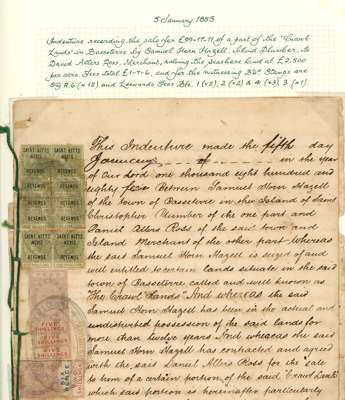 5 January 1885
Indenture recording the sale for £99-17-11, of a part of the "Crawl
Lands" in Basseterre by Samuel Horn Hazell, Island Plumber, to
Daniel Allers Ross, Merchant, valuing the seashore land at £2,500
per acre. Fees total £1-7-6, and for the witnessing
SG R.6 (x 18) and Leewards Fees
This Indenture made the fifth day
January of in the year
of Our Lord one thousand eight hundred and
eighty five Between Samuel Horn Hazell
of the town of Basseterre in the Island of Saint
Christopher Plumber of the one part and
Daniel Allers Ross of the said town and
Island Merchant of the other part Whereas
the said Samuel Horn Hazell is seized of and
well entitled to certain lands situate in the said
town of Basseterre called and well known as
"The Crawl Lands" And whereas the said
Samuel Horn Hazell has been in the actual and
undisturbed possession of the said lands for
more than twelve years And whereas the said
Samuel Horn Hazell has contracted and agreed
with the said Daniel Allers Ross for the sale
to him of a certain portion of the said "Crawl Lands"
which said portion is hereinafter particularly
SAINT KITTS NEVIS
REVENUE
SAINT KITTS NEVIS
REVENUE
FIVE
SHILLINGS
FIVE
SHILLINGS